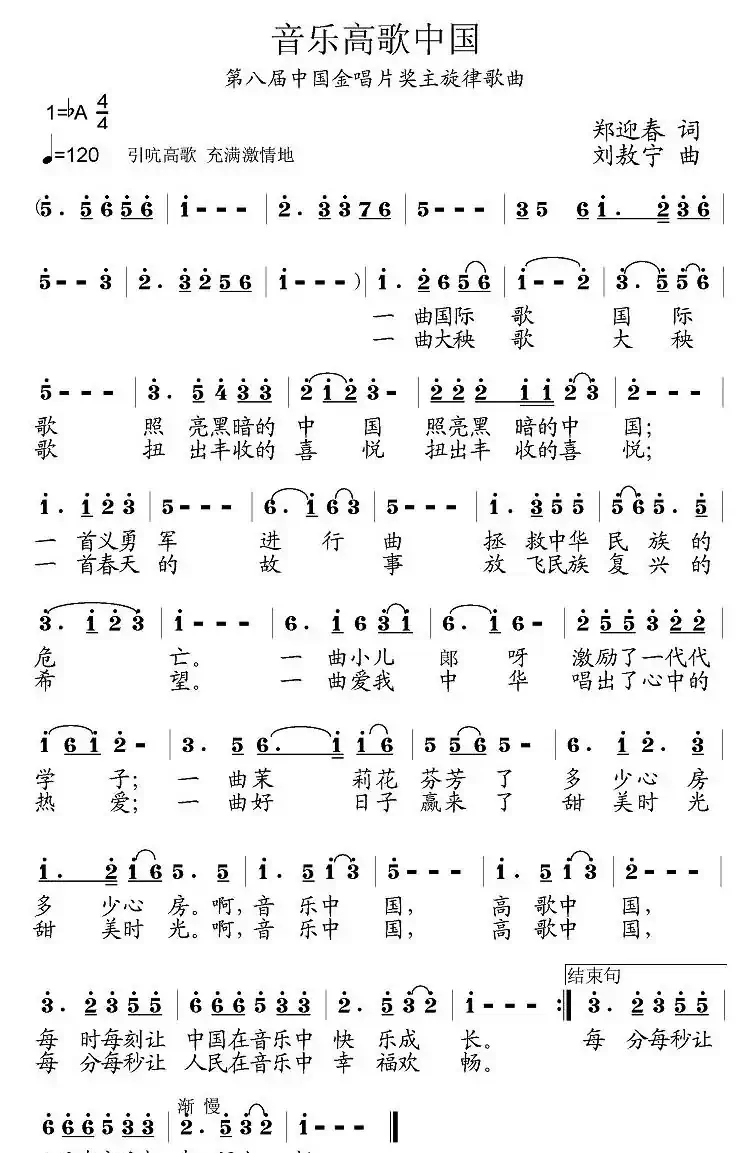 音乐高歌中国
第八届中国金唱片奖主旋律歌曲
1=♭A 4/4
郑迎春 词
♩=120 引吭高歌 充满激情地
刘敖宁 曲
(5. 5 6 5 6 | i - - - | 2. 3 3 7 6 | 5 - - - | 3 5 6 i. 2 2 3 6 |
5 - - 3 | 2. 3 2 5 6 | i - - - ) | i. 2 6 5 6 | i - - 2 | 3. 5 5 6 |
一 曲国际 歌 国 际
一 曲大秧 歌 大 秧
5 - - - | 3. 5 4 3 3 | 2 i 2 3 - | 2 2 2 i i 2 3 | 2 - - - |
歌 照 亮黑暗的 中 国 照亮黑 暗的中 国;
歌 扭 出丰收的 喜 悦 扭出丰 收的喜 悦;
i. i 2 3 | 5 - - - | 6. i 6 3 | 5 - - - | i. 3 5 5 | 5 6 5. 5 |
一 首义勇 军 进 行 曲 拯 救中华 民 族 的
一 首春天 的 故 事 放 飞民族 复 兴 的
3. i 2 3 | i - - - | 6. i 6 3 i | 6. i 6 - | 2 5 5 3 2 2 |
危 亡。 一 曲小儿 郎 呀 激励了一代代
希 望。 一 曲爱我 中 华 唱出了心中的
i 6 i 2 - | 3. 5 6. i i i 6 | 5 5 6 5 - | 6. i 2. 3 |
学 子; 一 曲茉 莉花 芬芳 了 多 少心 房
热 爱; 一 曲好 日子 赢来 了 甜 美时 光
i. 2 i 6 5. 5 | i. 5 i 3 | 5 - - - | i. 5 i 3 | 2 - - - |
多 少心 房。啊, 音 乐中 国, 高 歌中 国,
甜 美时 光。啊, 音 乐中 国, 高 歌中 国,
结束句
3. 2 3 5 5 | 6 6 6 5 3 3 | 2. 5 3 2 | i - - - :| 3. 2 3 5 5 |
每 时每刻让 中国在音乐中 快 乐成 长。 每 分每秒让
每 分每秒让 人民在音乐中 幸 福欢 畅。
渐 慢
6 6 6 5 3 3 | 2. 5 3 2 | i - - - ||